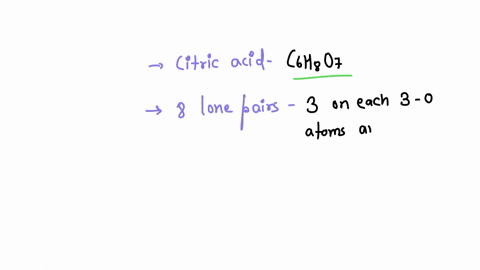 → Citric acid- C6H8O7
→ 8 lone pairs - 3 on each 3-O
atoms